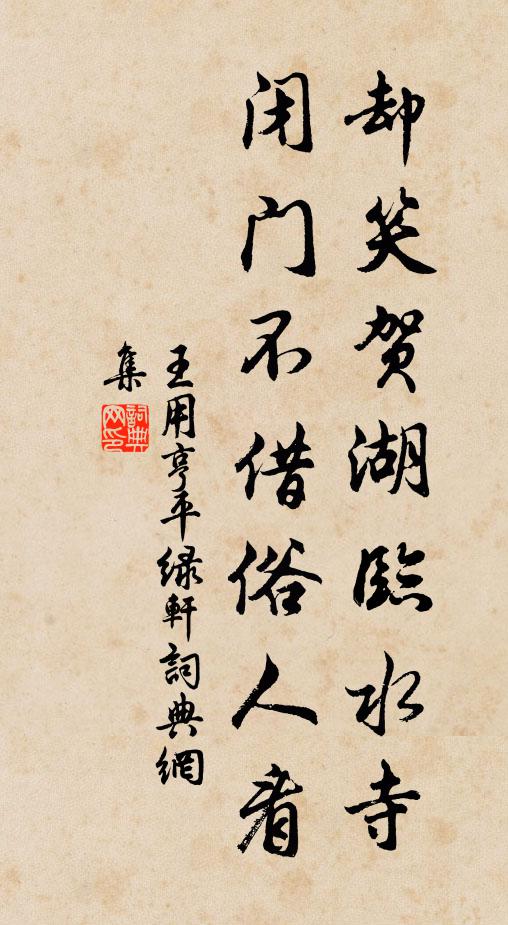 却笑贺湖臨水寺
闭门不借俗人看
王用亨平绿軒詞典網
集
詞典网印